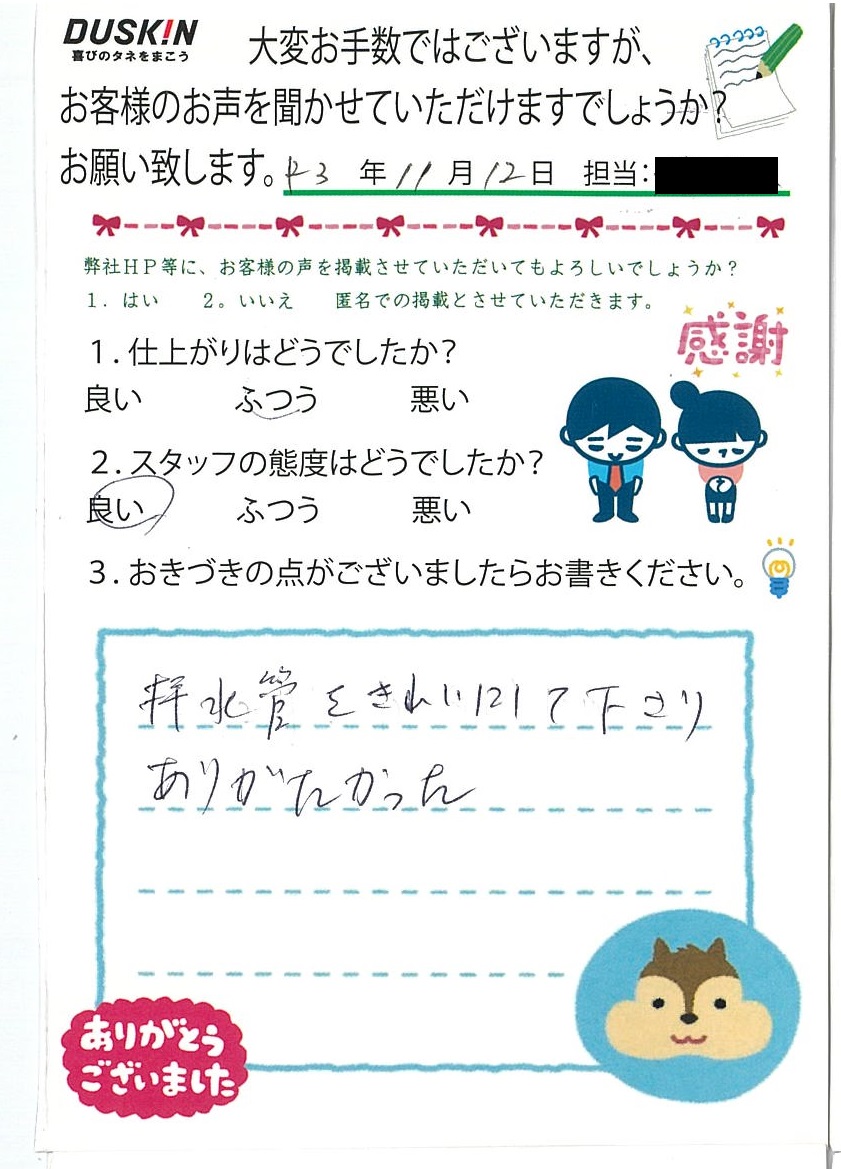 DUSK!N
喜びのタネをまこう
大変お手数ではございますが、
お客様のお声を聞かせていただけますでしょうか?
お願い致します。R3 年 11 月 12 日 担当:
弊社HP等に、お客様の声を掲載させていただいてもよろしいでしょうか?
1. はい 2。いいえ 匿名での掲載とさせていただきます。
感謝
1.仕上がりはどうでしたか?
良い ふつう 悪い
2.スタッフの態度はどうでしたか?
良い ふつう 悪い
3.おきづきの点がございましたらお書きください。
排水管をきれいにして下さり
ありがたかった
ありがとう
ございました